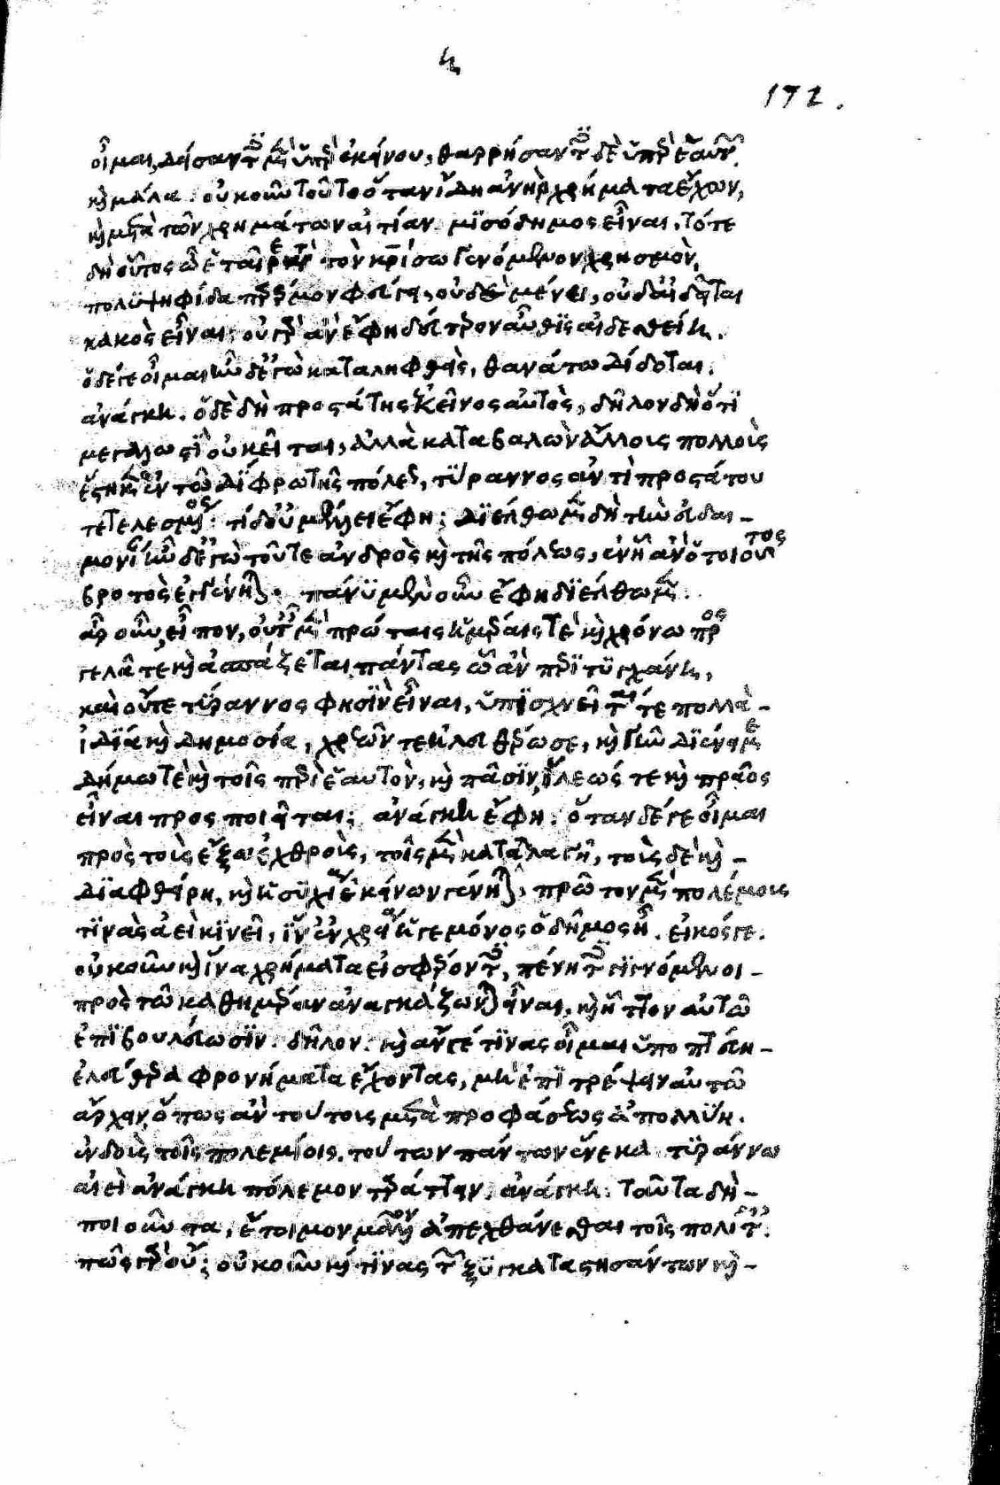 η
172.
οἶμαι, δείσαντες μὲν ὑπὲρ ἐκείνου, θαρρήσαντες δὲ ὑπὲρ ἑαυτῶν.
καὶ μάλα. οὐκοῦν τοῦτο ὅταν ἴδη ἀνὴρ χρήματα ἔχων,
καὶ μετὰ τῶν χρημάτων αἰτίαν μισόδημος εἶναι, τότε
δὴ οὗτος ὦ ἑταῖρε κατὰ τὸν κροίσω γενόμενον χρησμὸν,
πολυψήφιδα παρ' ἕρμον φεύγει, οὐδὲ μένει, οὐδ' αἰδεῖται
κακὸς εἶναι; οὐ γὰρ ἂν ἔφη δεύτερον αὖθις αἰδεσθείη.
ὁ δέ γε οἶμαι ἦν δ' ἐγὼ καταληφθεὶς, θανάτω δίδοται.
ἀνάγκη. ὁ δὲ δὴ προστάτης ἐκεῖνος αὐτὸς, δῆλον δὴ ὅτι
μέγας μεγαλωστὶ οὐ κεῖται, ἀλλὰ καταβαλὼν ἄλλους πολλοὺς
ἕστηκεν ἐν τῶ δίφρω τῆς πόλεως, τύραννος ἀντὶ προστάτου
τετελεσμένος. τί δ' οὐ μέλλει ἔφη; διέλθωμεν δὴ τὴν εὐδαι-
μονίαν ἦν δ' ἐγὼ τοῦ τε ἀνδρὸς καὶ τῆς πόλεως, ἐν ᾗ ἂν ὁ τοιοῦτος
βροτὸς ἐγγένηται. πάνυ μὲν οὖν ἔφη διέλθωμεν.
ἆρ' οὖν, εἶπον, οὐ ταῖς μὲν πρώταις ἡμέραις τε καὶ χρόνω προς
γελᾶ τε καὶ ἀσπάζεται πάντας ὧ ἂν περιτυγχάνη,
καὶ οὔτε τύραννος φησὶν εἶναι, ὑπισχνεῖταί τε πολλὰ
ἰδία καὶ δημοσία, χρεῶν τε ἠλευθέρωσε, καὶ γῆν διένειμε
δήμω τε καὶ τοῖς περὶ ἑαυτὸν, καὶ πᾶσιν ἵλεώς τε καὶ πρᾶος
εἶναι προσποιῆται; ἀνάγκη ἔφη. ὅταν δέ γε οἶμαι
πρὸς τοὺς ἔξω ἐχθροὺς, τοῖς μὲν καταλλαγῆ, τοὺς δὲ καὶ
διαφθείρη, καὶ ἡσυχία ἐκείνων γένηται, πρῶτον μὲν πολέμους
τινὰς ἀεὶ κινεῖ, ἵν' ἐν χρεία ἡγεμόνος ὁ δῆμος ῆ. εἰκός γε.
οὐκοῦν καὶ ἵνα χρήματα εἰσφέροντες, πένητες γιγνόμενοι
πρὸς τῶ καθημέραν ἀναγκάζωνται εἶναι, καὶ ἧττον αὐτῶ
ἐπιβουλεύωσιν. δῆλον. καὶ ἄν γέ τινας οἶμαι ὑποπτεύη
ἐλεύθερα φρονήματα ἔχοντας, μὴ ἐπιτρέψειν αὐτῶ
ἄρχειν, ὅπως ἂν τούτους μετὰ προφάσεως ἀπολλύη.
ἐνδοὺς τοῖς πολεμίοις. τούτων πάντων ἕνεκα τυράννω
αἰεὶ ἀνάγκη πόλεμον ταράττειν. ἀνάγκη. ταῦτα δὴ
ποιοῦντα, ἕτοιμον μᾶλλον ἀπεχθάνεσθαι τοῖς πολίταις.
πῶς γὰρ οὔ; οὐκοῦν καί τινας τῶν ξυγκαταστησάντων καὶ